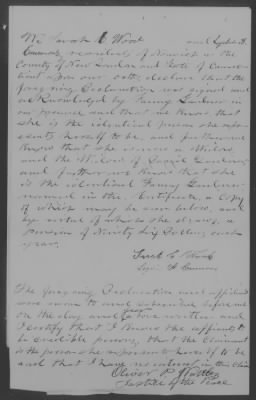 We Sarah E. Wood and Lydia A.
residents of Norwich in the
County of New London and State of Connec
ticut upon our oaths, declare that the
foregoing Declaration was signed and
acknowledged by Fanny Gardner in
our presence and that we know that
she is the identical person she repre
sents herself to be, and furthermore
know that she is now a Widow
and the Widow of Gardner
and further we know that she
is the identical Fanny Gardner
named in the Certificate, a Copy
of which may be seen below, and
by virtue of which she draws a
pension of Ninety Six Dollars each
year.
Sarah E. Wood
A.
The foregoing Declaration and affidavit
were sworn to and subscribed before me
on the day and year before written and
I certify that I know the affiants to
be credible persons, that the Claimant
is the person she represents herself to be
and that I have no interest in this Claim
Oliver P.
Justice of the Peace